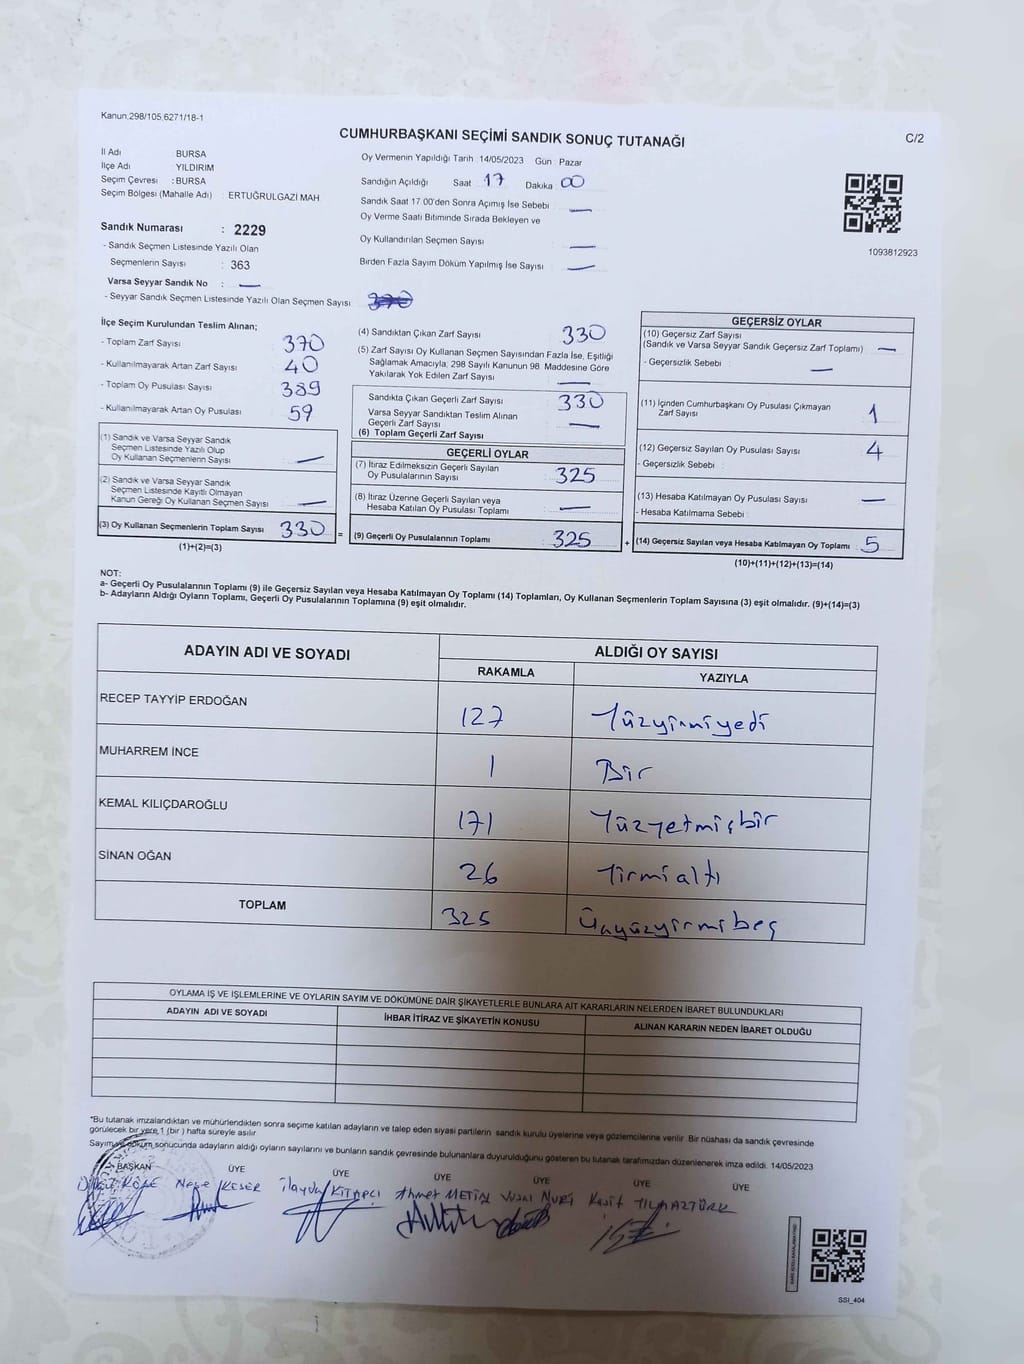 Kanun.298/105,6271/18-1
CUMHURBAŞKANI SEÇİMİ SANDIK SONUÇ TUTANAĞI
C/2
İl Adı BURSA
İlçe Adı YILDIRIM
Seçim Çevresi : BURSA
Seçim Bölgesi (Mahalle Adı) : ERTUĞRULGAZİ MAH
Oy Vermenin Yapıldığı Tarih 14/05/2023 Gün : Pazar
Sandığın Açıldığı Saat 17 Dakika 00
Sandık Saat 17.00'den Sonra Açımış İse Sebebi —
Oy Verme Saati Bitiminde Sırada Bekleyen ve
Oy Kullandırılan Seçmen Sayısı —
Birden Fazla Sayım Döküm Yapılmış İse Sayısı —
1093812923
Sandık Numarası : 2229
- Sandık Seçmen Listesinde Yazılı Olan
Seçmenlerin Sayısı : 363
Varsa Seyyar Sandık No : —
- Seyyar Sandık Seçmen Listesinde Yazılı Olan Seçmen Sayısı
İlçe Seçim Kurulundan Teslim Alınan;
- Toplam Zarf Sayısı 370
- Kullanılmayarak Artan Zarf Sayısı 40
- Toplam Oy Pusulası Sayısı 389
- Kullanılmayarak Artan Oy Pusulası 59
(1) Sandık ve Varsa Seyyar Sandık
Seçmen Listesinde Yazılı Olup
Oy Kullanan Seçmenlerin Sayısı —
(2) Sandık ve Varsa Seyyar Sandık
Seçmen Listesinde Kayıtlı Olmayan
Kanun Gereği Oy Kullanan Seçmen Sayısı —
(3) Oy Kullanan Seçmenlerin Toplam Sayısı 330
(1)+(2)=(3)
(4) Sandıktan Çıkan Zarf Sayısı 330
(5) Zarf Sayısı Oy Kullanan Seçmen Sayısından Fazla İse, Eşitliği
Sağlamak Amacıyla, 298 Sayılı Kanunun 98. Maddesine Göre
Yakılarak Yok Edilen Zarf Sayısı —
Sandıkta Çıkan Geçerli Zarf Sayısı 330
Varsa Seyyar Sandıktan Teslim Alınan
Geçerli Zarf Sayısı —
(6) Toplam Geçerli Zarf Sayısı
GEÇERLİ OYLAR
(7) İtiraz Edilmeksizin Geçerli Sayılan
Oy Pusulalarının Sayısı 325
(8) İtiraz Üzerine Geçerli Sayılan veya
Hesaba Katılan Oy Pusulası Toplamı —
= (9) Geçerli Oy Pusulalarının Toplamı 325
GEÇERSİZ OYLAR
(10) Geçersiz Zarf Sayısı
(Sandık ve Varsa Seyyar Sandık Geçersiz Zarf Toplamı) —
- Geçersizlik Sebebi : —
(11) İçinden Cumhurbaşkanı Oy Pusulası Çıkmayan
Zarf Sayısı 1
(12) Geçersiz Sayılan Oy Pusulası Sayısı 4
- Geçersizlik Sebebi :
(13) Hesaba Katılmayan Oy Pusulası Sayısı —
- Hesaba Katılmama Sebebi :
+ (14) Geçersiz Sayılan veya Hesaba Katılmayan Oy Toplamı 5
(10)+(11)+(12)+(13)=(14)
NOT:
a- Geçerli Oy Pusulalarının Toplamı (9) ile Geçersiz Sayılan veya Hesaba Katılmayan Oy Toplamı (14) Toplamları, Oy Kullanan Seçmenlerin Toplam Sayısına (3) eşit olmalıdır. (9)+(14)=(3)
b- Adayların Aldığı Oyların Toplamı, Geçerli Oy Pusulalarının Toplamına (9) eşit olmalıdır.
ADAYIN ADI VE SOYADI ALDIĞI OY SAYISI
RAKAMLA YAZIYLA
RECEP TAYYİP ERDOĞAN 127 Yüzyirmiyedi
MUHARREM İNCE 1 Bir
KEMAL KILIÇDAROĞLU 171 Yüzyetmişbir
SİNAN OĞAN 26 Yirmialtı
TOPLAM 325 Üçyüzyirmibeş
OYLAMA İŞ VE İŞLEMLERİNE VE OYLARIN SAYIM VE DÖKÜMÜNE DAİR ŞİKAYETLERLE BUNLARA AİT KARARLARIN NELERDEN İBARET BULUNDUKLARI
ADAYIN ADI VE SOYADI İHBAR İTİRAZ VE ŞİKAYETİN KONUSU ALINAN KARARIN NEDEN İBARET OLDUĞU
*Bu tutanak imzalandıktan ve mühürlendikten sonra seçime katılan adayların ve talep eden siyasi partilerin sandık kurulu üyelerine veya gözlemcilerine verilir. Bir nüshası da sandık çevresinde
görülecek bir yere 1 (bir ) hafta süreyle asılır.
Sayım ve döküm sonucunda adayların aldığı oyların sayılarını ve bunların sandık çevresinde bulunanlara duyurulduğunu gösteren bu tutanak tarafımızdan düzenlenerek imza edildi. 14/05/2023
BAŞKAN ÜYE ÜYE ÜYE ÜYE ÜYE ÜYE
KÖSE Neşe KESER İlayda KİTAPÇI Ahmet METİN NURİ YILMAZTÜRK
SSI_404